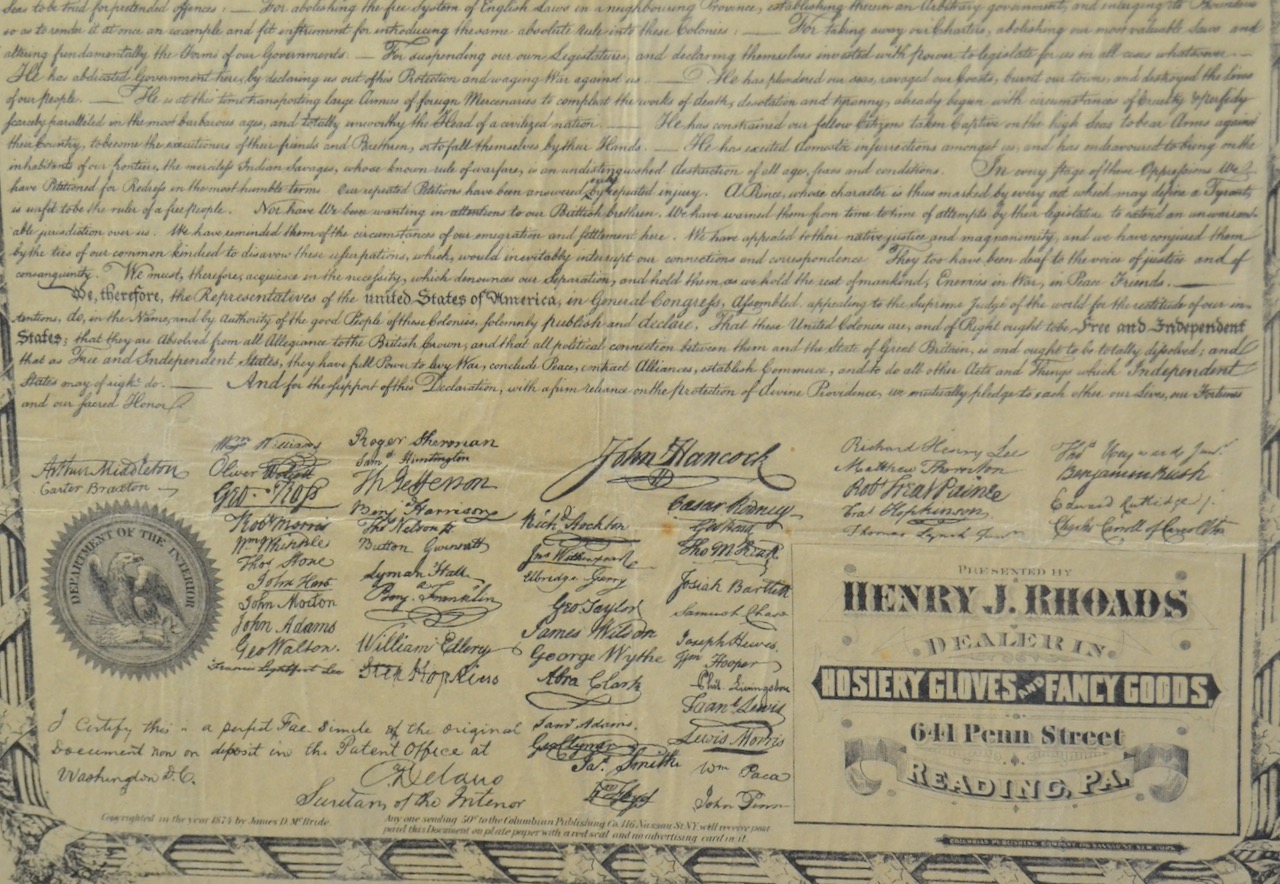 Seas to be tried for pretended offences : — For abolishing the free System of English Laws in a neighbouring Province, establishing therein an Arbitrary government, and enlarging its Boundaries
so as to render it at once an example and fit instrument for introducing the same absolute rule into these Colonies : — For taking away our Charters, abolishing our most valuable Laws and
altering fundamentally the Forms of our Governments : — For suspending our own Legislatures, and declaring themselves invested with power to legislate for us in all cases whatsoever —
He has abdicated Government here, by declaring us out of his Protection and waging War against us — He has plundered our seas, ravaged our Coasts, burnt our towns, and destroyed the lives
of our people. — He is at this time transporting large Armies of foreign Mercenaries to compleat the works of death, desolation and tyranny, already begun with circumstances of Cruelty & perfidy
scarcely paralleled in the most barbarous ages, and totally unworthy the Head of a civilized nation. — He has constrained our fellow Citizens taken Captive on the high Seas to bear Arms against
their Country, to become the executioners of their friends and Brethren, or to fall themselves by their Hands. — He has excited domestic insurrections amongst us, and has endeavoured to bring on the
inhabitants of our frontiers, the merciless Indian Savages, whose known rule of warfare, is an undistinguished destruction of all ages, sexes and conditions. In every stage of these Oppressions We
have Petitioned for Redress in the most humble terms Our repeated Petitions have been answered by repeated injury. A Prince, whose character is thus marked by every act which may define a Tyrant,
is unfit to be the ruler of a free People. Nor have We been wanting in attentions to our Brittish brethren. We have warned them from time to time of attempts by their legislature to extend an unwarrant-
able jurisdiction over us. We have reminded them of the circumstances of our emigration and settlement here. We have appealed to their native justice and magnanimity, and we have conjured them
by the ties of our common kindred to disavow these usurpations, which, would inevitably interrupt our connections and correspondence They too have been deaf to the voice of justice and of
consanguinity. We must, therefore, acquiesce in the necessity, which denounces our Separation, and hold them, as we hold the rest of mankind, Enemies in War, in Peace Friends. —
We, therefore, the Representatives of the united States of America, in General Congress, Assembled, appealing to the Supreme Judge of the world for the rectitude of our in-
tentions, do, in the Name, and by Authority of the good People of these Colonies, solemnly publish and declare, That these United Colonies are, and of Right ought to be Free and Independent
States; that they are Absolved from all Allegiance to the British Crown, and that all political connection between them and the State of Great Britain, is and ought to be totally dissolved; and
that as Free and Independent States, they have full Power to levy War, conclude Peace, contract Alliances, establish Commerce, and to do all other Acts and Things which Independent
States may of right do. — And for the support of this Declaration, with a firm reliance on the protection of divine Providence, we mutually pledge to each other our Lives, our Fortunes
and our sacred Honor
Arthur Middleton
Carter Braxton
Wm Williams
Oliver Wolcott
Geo. Ross
Robt Morris
Wm Whipple
Thos Stone
John Hart
John Morton
John Adams
Geo Walton.
Francis Lightfoot Lee
Roger Sherman
Saml Huntington
Th Jefferson
Benj Harrison
Thos Nelson jr
Button Gwinnett
Lyman Hall
Benj. Franklin
William Ellery
Step Hopkins
John Hancock
Richd Stockton
Jno Witherspoon
Elbridge Gerry
Geo Taylor
James Wilson
George Wythe
Abra Clark
Saml Adams
Geo Clymer
Jas. Smith
Wm Floyd
Caesar Rodney
Geo Read
Tho M:Kean
Josiah Bartlett
Samuel Chase
Joseph Hewes,
Wm Hooper
Phil. Livingston
Frans. Lewis
Lewis Morris
Wm Paca
John Penn
Richard Henry Lee
Matthew Thornton
Robt Treat Paine
Fras Hopkinson
Thomas Lynch Junr
Thos Heyward Junr.
Benjamin Rush
Edward Rutledge /.
Charles Carroll of Carrollton
DEPARTMENT OF THE INTERIOR
I Certify this is a perfect Fac Simile of the original
Document now on deposit in the Patent Office at
Washington D.C.
C Delano
Secretary of the Interior
Copyrighted in the year 1874 by James D. McBride.
Any one sending 50c to the Columbian Publishing Co. 116 Nassau St NY. will receive post
paid this Document on plate paper with a red seal and no advertising card in it.
PRESENTED BY
HENRY J. RHOADS
DEALER IN
HOSIERY GLOVES AND FANCY GOODS,
641 Penn Street
READING, PA.
COLUMBIAN PUBLISHING COMPANY 116 NASSAU ST. NEW YORK